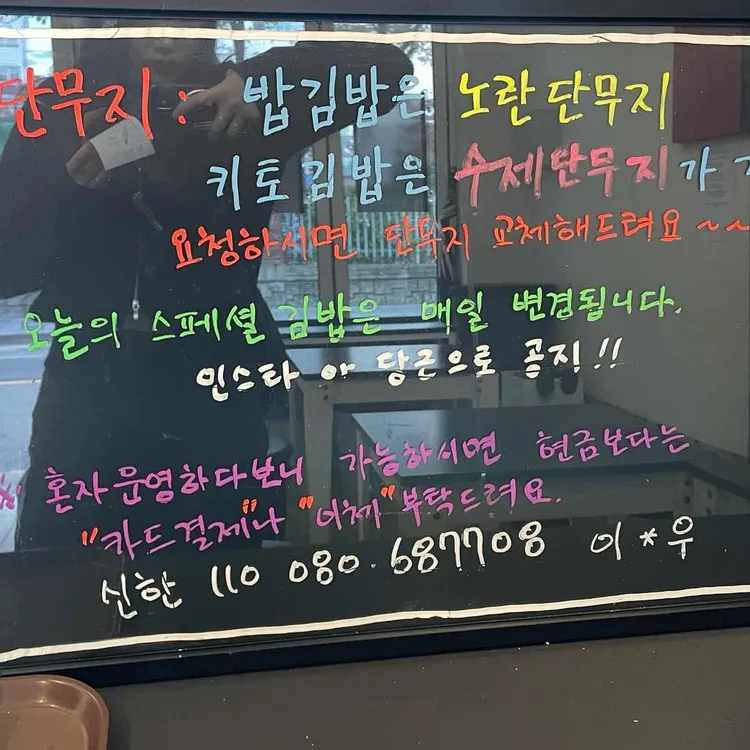 단무지 : 밥김밥은 노란단무지
키토김밥은 수제단무지가
요청하시면 단무지 교체해드려요~~
오늘의 스페셜 김밥은 매일 변경됩니다.
인스타 와 당근으로 공지!!
※ 혼자 운영하다보니 가능하시면 현금보다는
"카드결제"나 "이체" 부탁드려요.
신한 110 080.687708 이*우